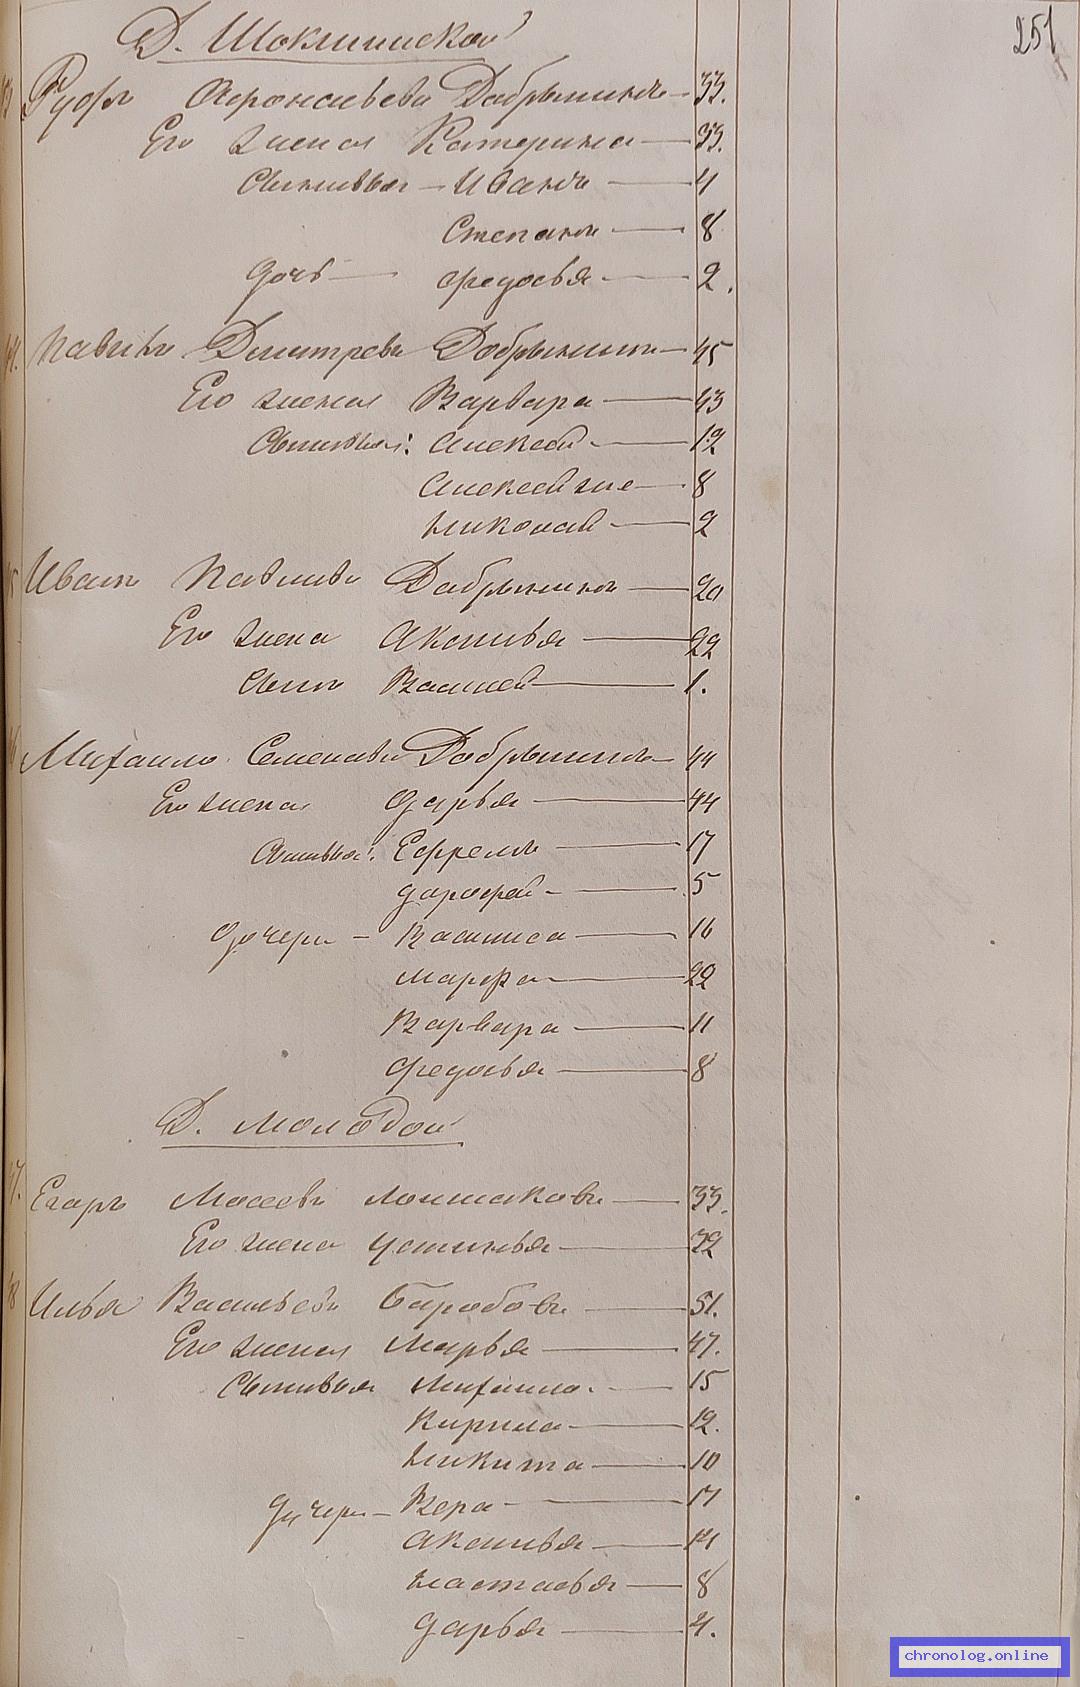 251
Д. Шоклинской
Руфъ Афонасьевъ Добрынинъ — 33.
Его жена Катерина — 33.
Сыновья — Иванъ — 4
Степанъ — 8
Дочь — Федосья — 2.
Павелъ Дмитревъ Добрынинъ — 45
Его жена Варвара — 43
Сыновья: Алексей — 12
Алексей же — 8
Николай — 2
Иванъ Павловъ Добрынинъ — 20
Его жена Аксинья — 22
Сынъ Василей — 1.
Михаило Семеновъ Добрынинъ — 44
Его жена Дарья — 44
Сыновья: Ефремъ — 17
Дарофей — 5
Дочери — Василиса — 16
Марфа — 22
Варвара — 11
Федосья — 8
Д. Молодой
47. Егоръ Мосеевъ Лошаковъ — 33.
Его жена Устинья — 32
Илья Васильевъ — 51.
Его жена Марья — 47.
Сыновья Михаило — 15
Кирила — 12.
Никита — 10
Дочери — Вера — 17
Аксинья — 14
Настасья — 8
Дарья — 4.
chronolog.online